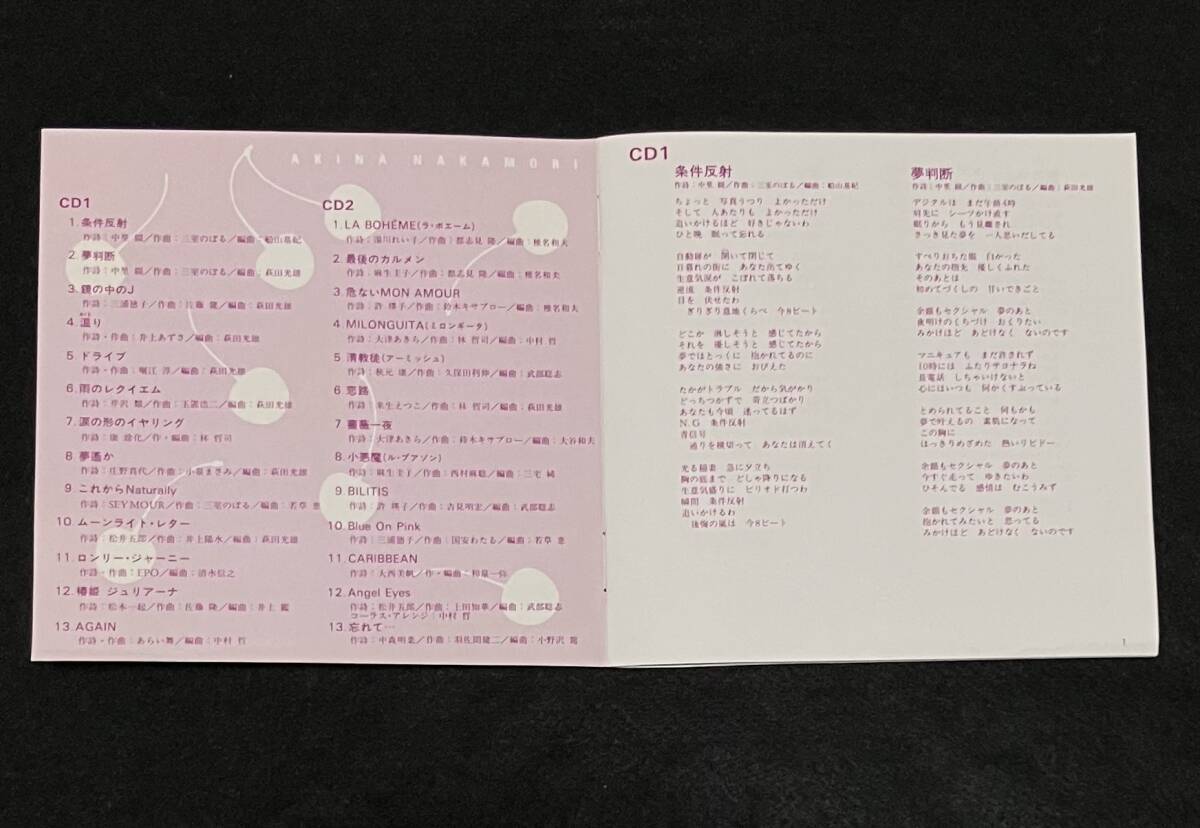 AKINA NAKAMORI
CD1
1.条件反射
作詩:中里 綴/作曲:三室のぼる/編曲:船山基紀
2.夢判断
作詩:中里 綴/作曲:三室のぼる/編曲:萩田光雄
3.鏡の中のJ
作詩:三浦徳子/作曲:佐藤 健/編曲:萩田光雄
4.温り
作詩・作曲:井上あずさ/編曲:萩田光雄
5.ドライブ
作詩・作曲:堀江 淳/編曲:萩田光雄
6.雨のレクイエム
作詩:芹沢 類/作曲:玉置浩二/編曲:萩田光雄
7.涙の形のイヤリング
作詩:康 珍化/作・編曲:林 哲司
8.夢遙か
作詩:庄野真代/作曲:小泉まさみ/編曲:萩田光雄
9.これからNaturally
作詩:SEYMOUR/作曲:三室のぼる/編曲:若草 恵
10.ムーンライト・レター
作詩:松井五郎/作曲:井上陽水/編曲:萩田光雄
11.ロンリー・ジャーニー
作詩・作曲:EPO/編曲:清水信之
12.椿姫 ジュリアーナ
作詩:松本一起/作曲:佐藤 隆/編曲:井上 鑑
13.AGAIN
作詩・作曲:あらい舞/編曲:中村 哲
CD2
1.LA BOHÈME(ラ・ボエーム)
作詩:湯川れい子/作曲:都志見 隆/編曲:椎名和夫
2.最後のカルメン
作詩:麻生圭子/作曲:都志見 隆/編曲:椎名和夫
3.危ないMON AMOUR
作詩:許 瑛子/作曲:鈴木キサブロー/編曲:椎名和夫
4.MILONGUITA(ミロンギータ)
作詩:大津あきら/作曲:林 哲司/編曲:中村 哲
5.清教徒(アーミッシュ)
作詩:秋元 康/作曲:久保田利伸/編曲:武部聡志
6.恋路
作詩:来生えつこ/作曲:林 哲司/編曲:萩田光雄
7.薔薇一夜
作詩:大津あきら/作曲:鈴木キサブロー/編曲:大谷和夫
8.小悪魔(ル・プアゾン)
作詩:麻生圭子/作曲:西村麻聡/編曲:三宅 純
9.BILITIS
作詩:許 瑛子/作曲:吉見明宏/編曲:武部聡志
10.Blue On Pink
作詩:三浦徳子/作曲:国安わたる/編曲:若草 恵
11.CARIBBEAN
作詩:大西美帆/作・編曲:和泉一弥
12.Angel Eyes
作詩:松井五郎/作曲:上田知華/編曲:武部聡志
コーラス・アレンジ:中村 哲
13.忘れて…
作詩:中森明菜/作曲:羽佐間健二/編曲:小野沢 篤
CD1
条件反射
作詩:中里 綴/作曲:三室のぼる/編曲:船山基紀
ちょっと 写真うつり よかっただけ
そして 人あたりも よかっただけ
追いかけるほど 好きじゃないわ
ひと晩 眠って忘れる
自動扉が 開いて閉じて
日暮れの街に あなた出てゆく
生意気涙が こぼれて落ちる
逆流 条件反射
目を 伏せたわ
ぎりぎり意地くらべ 今8ビート
どこか 淋しそうと 感じてたから
それを 優しそうと 感じてたから
夢ではとっくに 抱かれてるのに
あなたの強さに おびえた
たかがトラブル だから気がかり
どっちつかずで 苛立つばかり
あなたも今頃 迷ってるはず
N.G 条件反射
青信号
通りを横切って あなたは消えてく
光る稲妻 急に夕立ち
胸の底まで どしゃ降りになる
生意気盛りに ピリオド打つわ
瞬間 条件反射
追いかけるわ
後悔の嵐は 今8ビート
夢判断
作詩:中里 綴/作曲:三室のぼる/編曲:萩田光雄
デジタルは まだ午前4時
肩先に シーツかけ直す
眠りから もう見離され
さっき見た夢を 一人思いだしてる
すべりおちた服 白かった
あなたの指先 優しくふれた
そのあとは
初めてづくしの 甘いできごと
余韻もセクシャル 夢のあと
夜明けのくちづけ おくりたい
みかけほど あどけなく ないのです
マニキュアも まだ許されず
10時には ふたりサヨナラね
長電話 しちゃいけないと
心にはいつも 何かくすぶっている
とめられてること 何もかも
夢で叶えるの 素肌になって
この胸に
はっきりめざめた 熱いリビドー
余韻もセクシャル 夢のあと
今すぐ走って ゆきたいわ
ひそんでる 感情は むこうみず
余韻もセクシャル 夢のあと
抱かれてみたいと 思ってる
みかけほど あどけなく ないのです
1